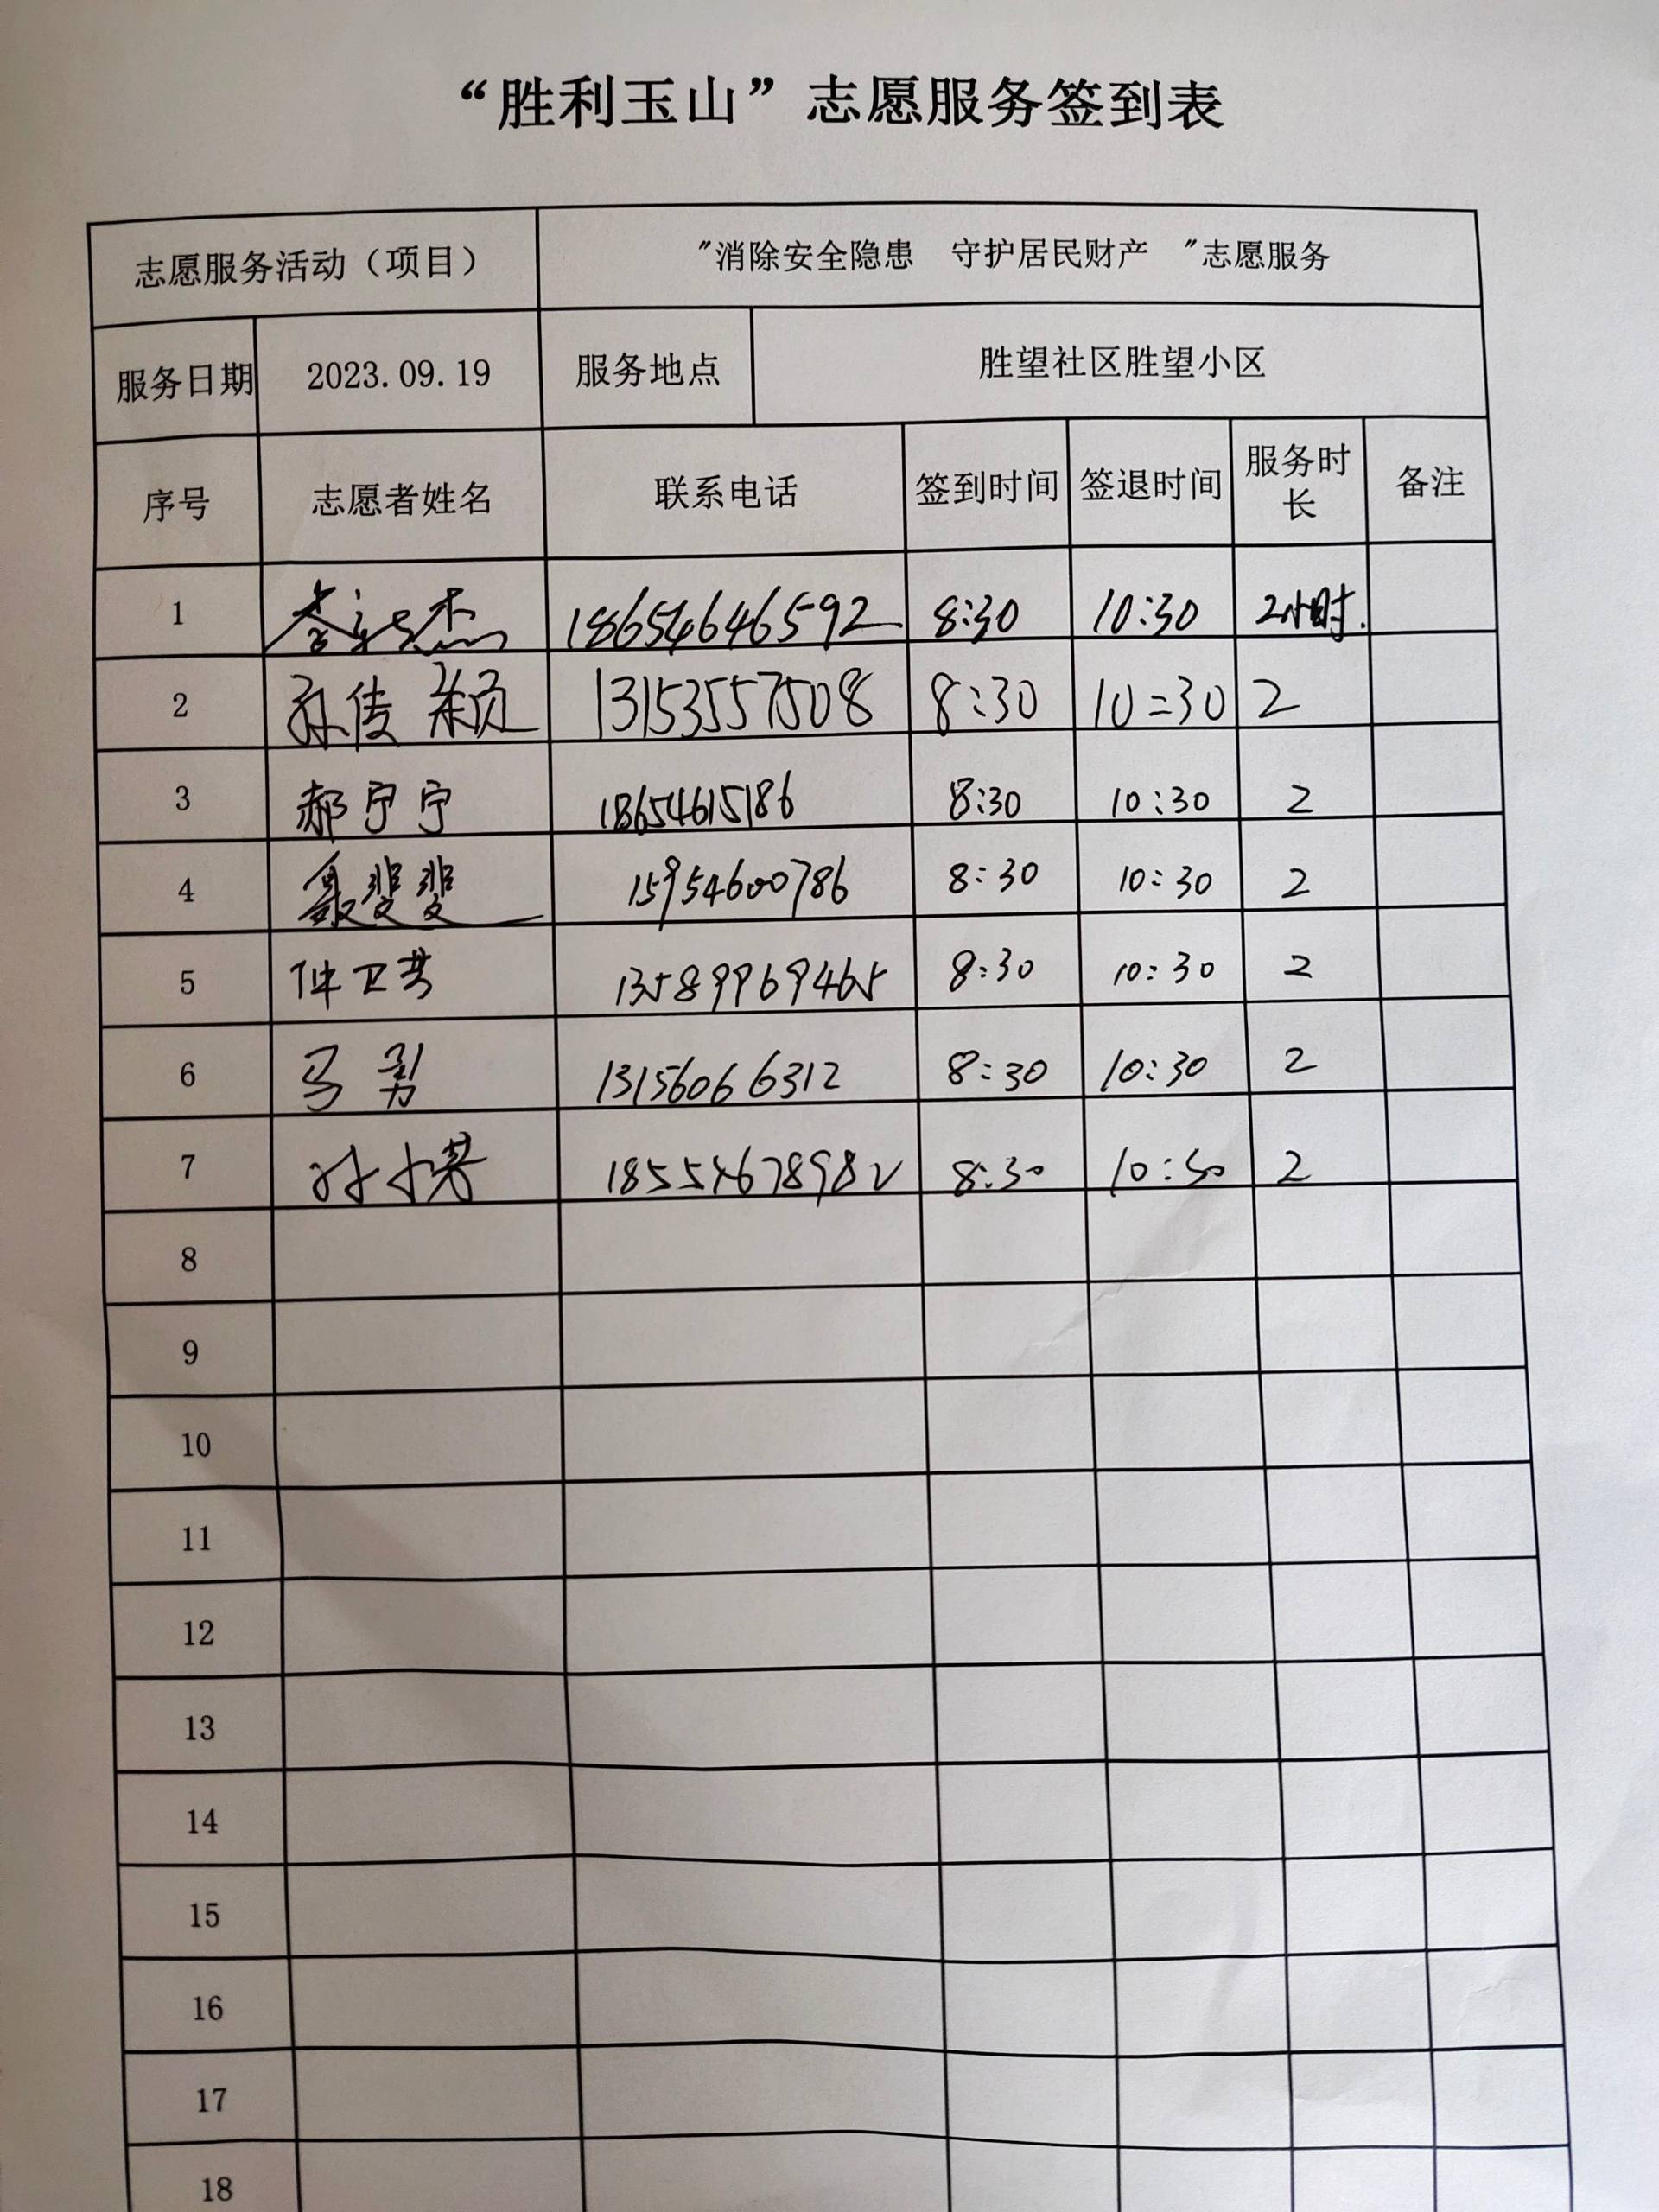 “胜利玉山”志愿服务签到表
志愿服务活动（项目） "消除安全隐患 守护居民财产 "志愿服务
服务日期 2023.09.19 服务地点 胜望社区胜望小区
序号 志愿者姓名 联系电话 签到时间 签退时间 服务时长 备注
1 18654646592 8:30 10:30 2小时.
2 孙传颖 13153557508 8:30 10:30 2
3 郝宁宁 18654615186 8:30 10:30 2
4 聂斐斐 15954600786 8:30 10:30 2
5 仲卫芳 13589969465 8:30 10:30 2
6 马勇 13156066312 8:30 10:30 2
7 8:30 10:30 2
8
9
10
11
12
13
14
15
16
17
18